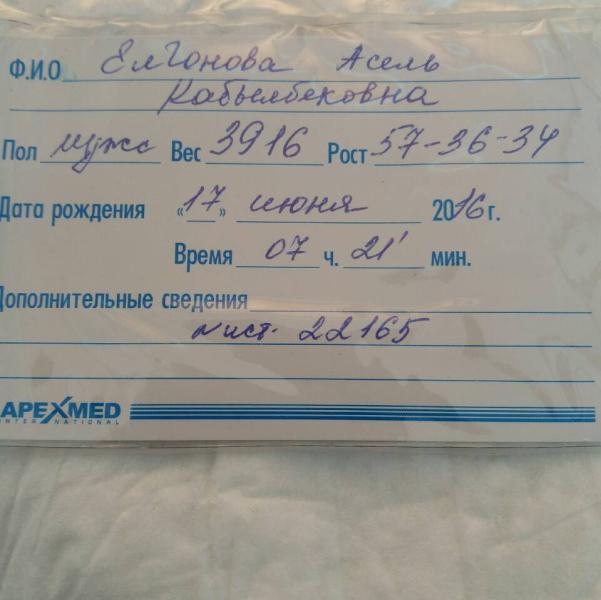 Ф.И.О Елгонова Асель
Кабылбековна
Пол мужс Вес 3916 Рост 57-36-34
Дата рождения «17» июня 2016г.
Время 07 ч. 21' мин.
Дополнительные сведения
№ ист. 22165
APEXMED
INTERNATIONAL